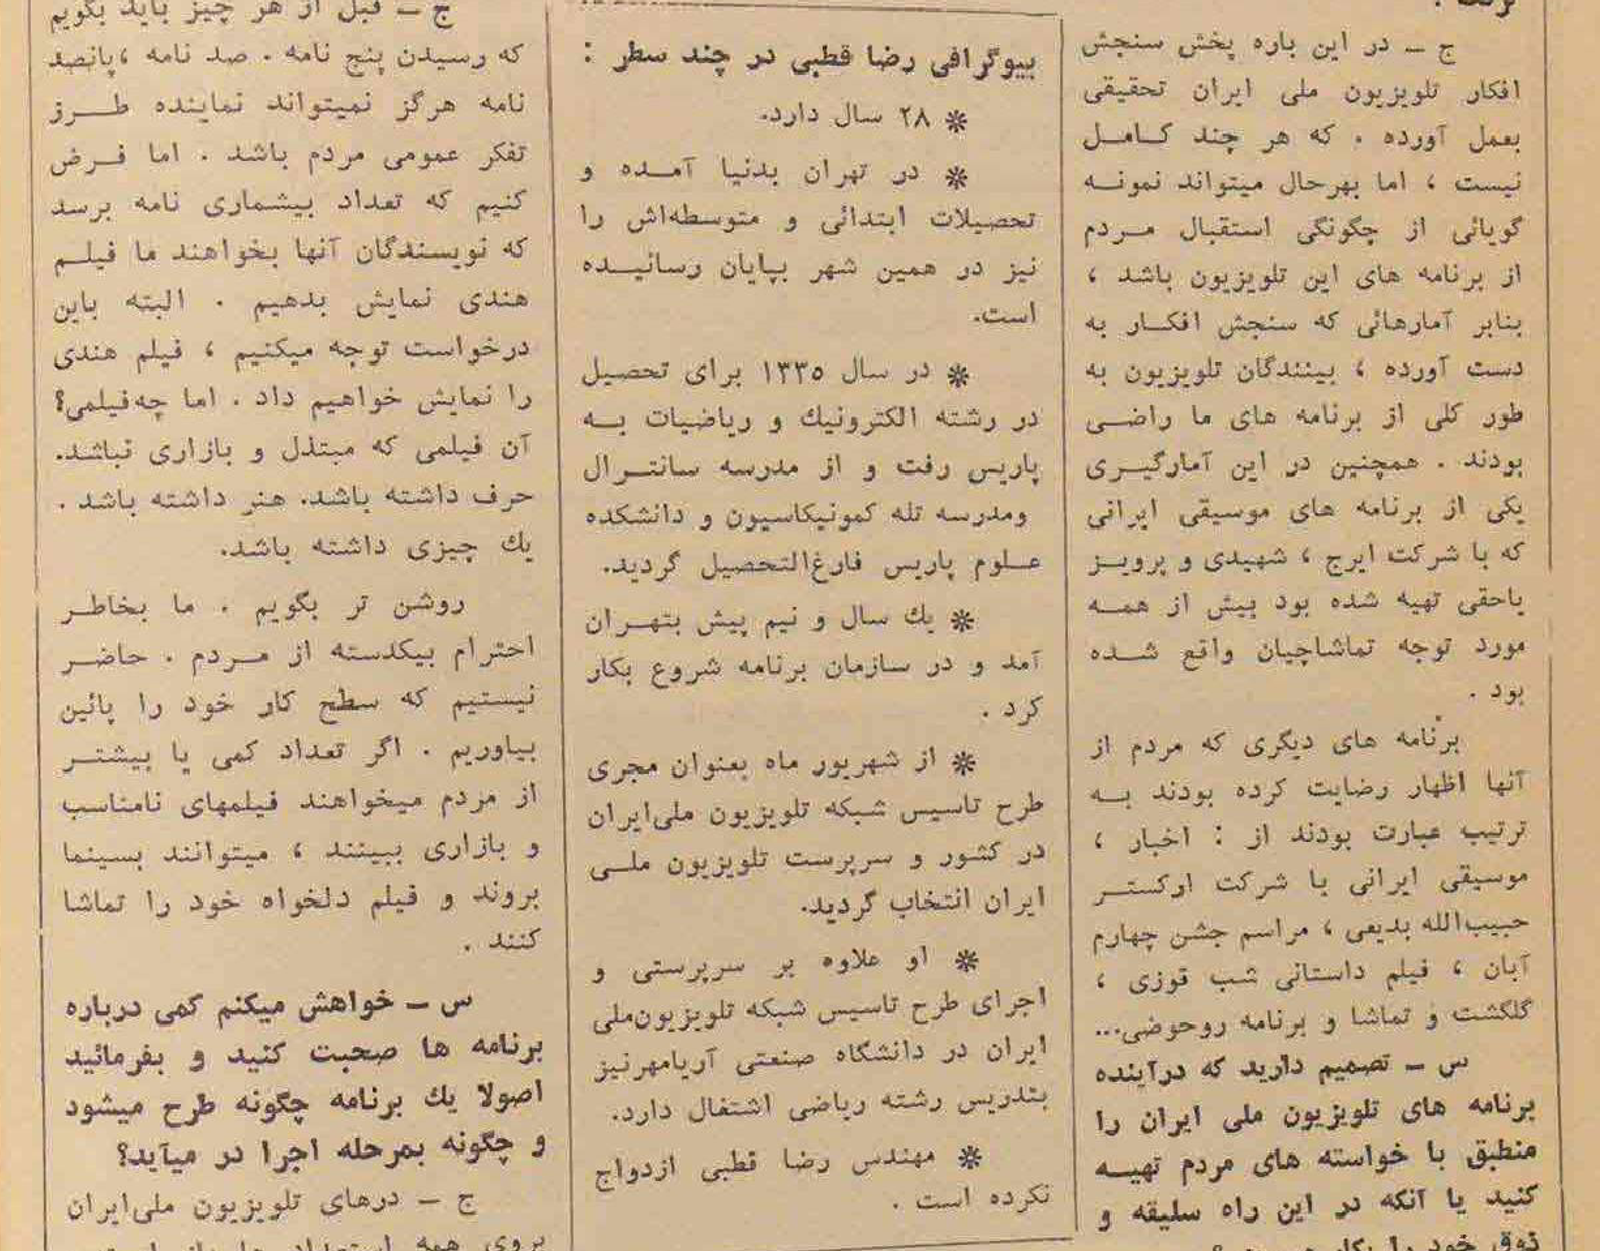 ج ـ در این باره پخش سنجش
افکار تلویزیون ملی ایران تحقیقی
بعمل آورده . که هر چند کامل
نیست ، اما بهرحال میتواند نمونه
گویائی از چگونگی استقبال مردم
از برنامه های این تلویزیون باشد ،
بنابر آمارهائی که سنجش افکار به
دست آورده ، بینندگان تلویزیون به
طور کلی از برنامه های ما راضی
بودند . همچنین در این آمارگیری
یکی از برنامه های موسیقی ایرانی
که با شرکت ایرج ، شهیدی و پرویز
یاحقی تهیه شده بود بیش از همه
مورد توجه تماشاچیان واقع شده
بود .
برنامه های دیگری که مردم از
آنها اظهار رضایت کرده بودند به
ترتیب عبارت بودند از : اخبار ،
موسیقی ایرانی با شرکت ارکستر
حبیب‌الله بدیعی ، مراسم جشن چهارم
آبان ، فیلم داستانی شب قوزی ،
گلگشت و تماشا و برنامه روحوضی...
س ـ تصمیم دارید که درآینده
برنامه های تلویزیون ملی ایران را
منطبق با خواسته های مردم تهیه
کنید یا آنکه در این راه سلیقه و
ذوق خود را بکار
بیوگرافی رضا قطبی در چند سطر :
* ۲۸ سال دارد.
* در تهران بدنیا آمده و
تحصیلات ابتدائی و متوسطه‌اش را
نیز در همین شهر بپایان رسانیده
است.
* در سال ۱۳۳۵ برای تحصیل
در رشته الکترونیك و ریاضیات به
پاریس رفت و از مدرسه سانترال
ومدرسه تله کمونیکاسیون و دانشکده
علوم پاریس فارغ‌التحصیل گردید.
* یك سال و نیم پیش بتهران
آمد و در سازمان برنامه شروع بکار
کرد .
* از شهریور ماه بعنوان مجری
طرح تاسیس شبکه تلویزیون ملی‌ایران
در کشور و سرپرست تلویزیون ملی
ایران انتخاب گردید.
* او علاوه بر سرپرستی و
اجرای طرح تاسیس شبکه تلویزیون‌ملی
ایران در دانشگاه صنعتی آریامهرنیز
بتدریس رشته ریاضی اشتغال دارد.
* مهندس رضا قطبی ازدواج
نکرده است .
ج ـ قبل از هر چیز باید بگویم
که رسیدن پنج نامه . صد نامه ،پانصد
نامه هرگز نمیتواند نماینده طرز
تفکر عمومی مردم باشد . اما فرض
کنیم که تعداد بیشماری نامه برسد
که نویسندگان آنها بخواهند ما فیلم
هندی نمایش بدهیم . البته باین
درخواست توجه میکنیم ، فیلم هندی
را نمایش خواهیم داد . اما چه‌فیلمی؟
آن فیلمی که مبتذل و بازاری نباشد.
حرف داشته باشد. هنر داشته باشد .
یك چیزی داشته باشد.
روشن تر بگویم . ما بخاطر
احترام بیکدسته از مردم . حاضر
نیستیم که سطح کار خود را پائین
بیاوریم . اگر تعداد کمی یا بیشتر
از مردم میخواهند فیلمهای نامناسب
و بازاری ببینند ، میتوانند بسینما
بروند و فیلم دلخواه خود را تماشا
کنند .
س ـ خواهش میکنم کمی درباره
برنامه ها صحبت کنید و بفرمائید
اصولا یك برنامه چگونه طرح میشود
و چگونه بمرحله اجرا در میآید؟
ج ـ درهای تلویزیون ملی‌ایران
بروی همه